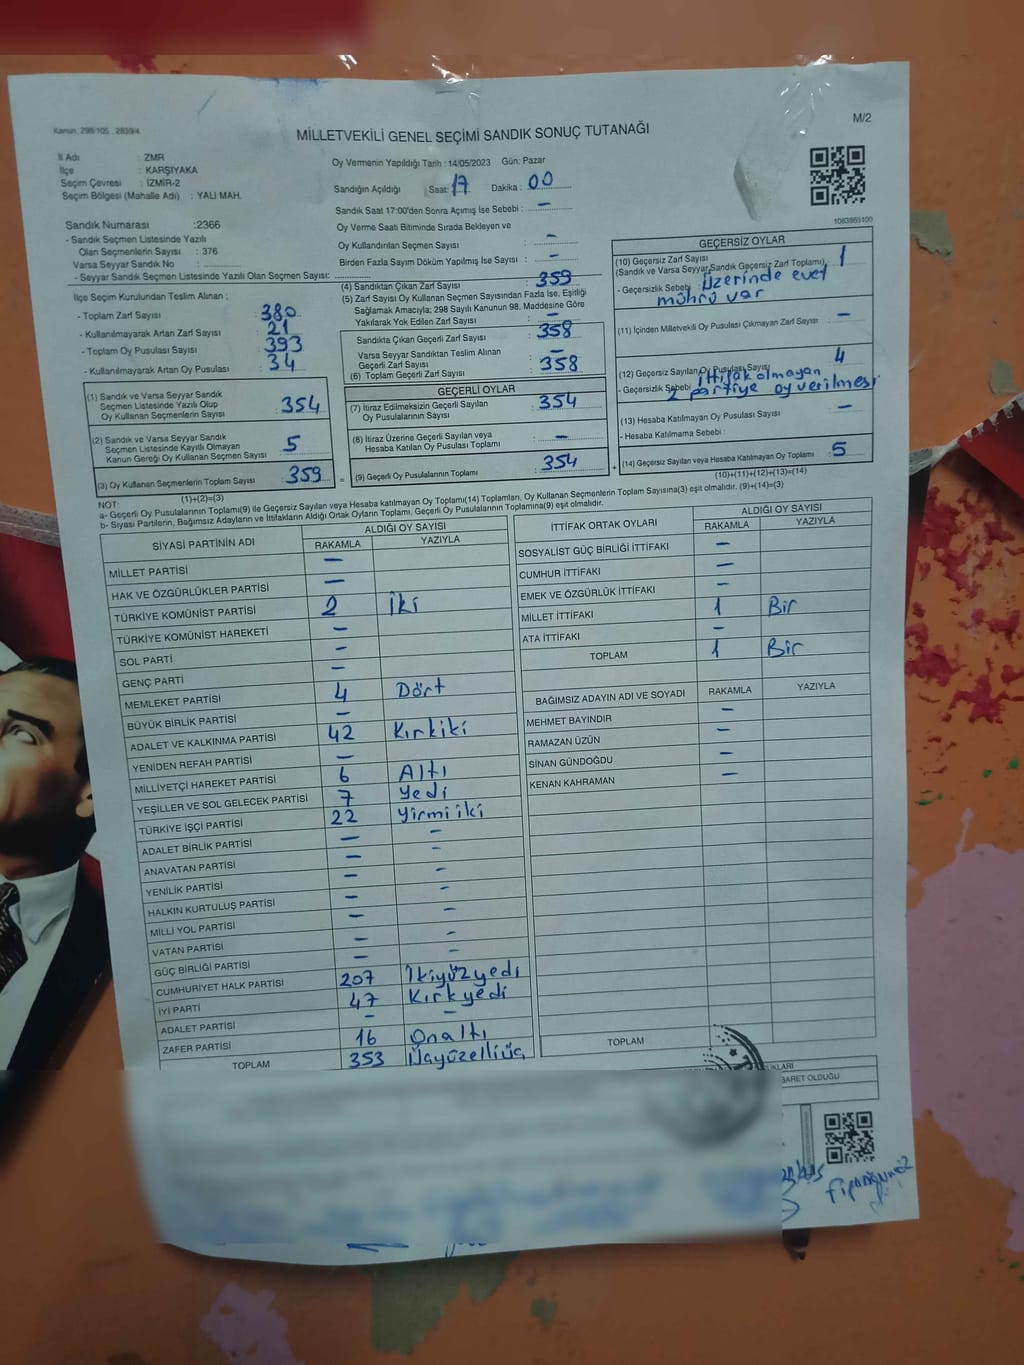 Kanun: 298/105 , 2839/4
M/2
MİLLETVEKİLİ GENEL SEÇİMİ SANDIK SONUÇ TUTANAĞI
İl Adı : ZMR
İlçe : KARŞIYAKA
Seçim Çevresi : İZMİR-2
Seçim Bölgesi (Mahalle Adı) : YALI MAH.
Oy Vermenin Yapıldığı Tarih : 14/05/2023 Gün: Pazar
Sandığın Açıldığı Saat: 17 Dakika : 00
Sandık Saat 17:00'den Sonra Açımış İse Sebebi : -
Oy Verme Saati Bitiminde Sırada Bekleyen ve
Oy Kullandırılan Seçmen Sayısı : -
Birden Fazla Sayım Döküm Yapılmış İse Sayısı : -
Sandık Numarası :2366
- Sandık Seçmen Listesinde Yazılı
Olan Seçmenlerin Sayısı : 376
Varsa Seyyar Sandık No :
- Seyyar Sandık Seçmen Listesinde Yazılı Olan Seçmen Sayısı:
İlçe Seçim Kurulundan Teslim Alınan ;
- Toplam Zarf Sayısı : 380
- Kullanılmayarak Artan Zarf Sayısı : 21
- Toplam Oy Pusulası Sayısı : 393
- Kullanılmayarak Artan Oy Pusulası : 34
(1) Sandık ve Varsa Seyyar Sandık
Seçmen Listesinde Yazılı Olup
Oy Kullanan Seçmenlerin Sayısı : 354
(2) Sandık ve Varsa Seyyar Sandık
Seçmen Listesinde Kayıtlı Olmayan
Kanun Gereği Oy Kullanan Seçmen Sayısı : 5
(3) Oy Kullanan Seçmenlerin Toplam Sayısı : 359
(1)+(2)=(3)
(4) Sandıktan Çıkan Zarf Sayısı : 359
(5) Zarf Sayısı Oy Kullanan Seçmen Sayısından Fazla İse, Eşitliği
Sağlamak Amacıyla; 298 Sayılı Kanunun 98. Maddesine Göre
Yakılarak Yok Edilen Zarf Sayısı : -
Sandıkta Çıkan Geçerli Zarf Sayısı : 358
Varsa Seyyar Sandıktan Teslim Alınan
Geçerli Zarf Sayısı : -
(6) Toplam Geçerli Zarf Sayısı : 358
GEÇERLİ OYLAR
(7) İtiraz Edilmeksizin Geçerli Sayılan
Oy Pusulalarının Sayısı : 354
(8) İtiraz Üzerine Geçerli Sayılan veya
Hesaba Katılan Oy Pusulası Toplamı : -
= (9) Geçerli Oy Pusulalarının Toplamı : 354
1083865100
GEÇERSİZ OYLAR
(10) Geçersiz Zarf Sayısı
(Sandık ve Varsa Seyyar Sandık Geçersiz Zarf Toplamı) : 1
- Geçersizlik Sebebi : Üzerinde evet
mührü var
(11) İçinden Milletvekili Oy Pusulası Çıkmayan Zarf Sayısı : -
(12) Geçersiz Sayılan Oy Pusulası Sayısı : 4
- Geçersizlik Sebebi : İttifak olmayan
2 partiye oy verilmesi
(13) Hesaba Katılmayan Oy Pusulası Sayısı : -
- Hesaba Katılmama Sebebi :
+ (14) Geçersiz Sayılan veya Hesaba Katılmayan Oy Toplamı : 5
(10)+(11)+(12)+(13)=(14)
NOT:
a- Geçerli Oy Pusulalarının Toplamı(9) ile Geçersiz Sayılan veya Hesaba katılmayan Oy Toplamı(14) Toplamları, Oy Kullanan Seçmenlerin Toplam Sayısına(3) eşit olmalıdır. (9)+(14)=(3)
b- Siyasi Partilerin, Bağımsız Adayların ve İttifakların Aldığı Ortak Oyların Toplamı, Geçerli Oy Pusulalarının Toplamına(9) eşit olmalıdır.
SİYASİ PARTİNİN ADI ALDIĞI OY SAYISI
RAKAMLA YAZIYLA
MİLLET PARTİSİ -
HAK VE ÖZGÜRLÜKLER PARTİSİ -
TÜRKİYE KOMÜNİST PARTİSİ 2 İki
TÜRKİYE KOMÜNİST HAREKETİ -
SOL PARTİ -
GENÇ PARTİ -
MEMLEKET PARTİSİ 4 Dört
BÜYÜK BİRLİK PARTİSİ -
ADALET VE KALKINMA PARTİSİ 42 Kırkiki
YENİDEN REFAH PARTİSİ -
MİLLİYETÇİ HAREKET PARTİSİ 6 Altı
YEŞİLLER VE SOL GELECEK PARTİSİ 7 Yedi
TÜRKİYE İŞÇİ PARTİSİ 22 Yirmi iki
ADALET BİRLİK PARTİSİ - -
ANAVATAN PARTİSİ - -
YENİLİK PARTİSİ - -
HALKIN KURTULUŞ PARTİSİ - -
MİLLİ YOL PARTİSİ - -
VATAN PARTİSİ - -
GÜÇ BİRLİĞİ PARTİSİ - -
CUMHURİYET HALK PARTİSİ 207 İkiyüzyedi
İYİ PARTİ 47 Kırkyedi
ADALET PARTİSİ - -
ZAFER PARTİSİ 16 Onaltı
TOPLAM 353 Üçyüzelliüç
İTTİFAK ORTAK OYLARI ALDIĞI OY SAYISI
RAKAMLA YAZIYLA
SOSYALİST GÜÇ BİRLİĞİ İTTİFAKI -
CUMHUR İTTİFAKI -
EMEK VE ÖZGÜRLÜK İTTİFAKI -
MİLLET İTTİFAKI 1 Bir
ATA İTTİFAKI -
TOPLAM 1 Bir
BAĞIMSIZ ADAYIN ADI VE SOYADI RAKAMLA YAZIYLA
MEHMET BAYINDIR -
RAMAZAN ÜZÜN -
SİNAN GÜNDOĞDU -
KENAN KAHRAMAN -
TOPLAM
BARET OLDUĞU